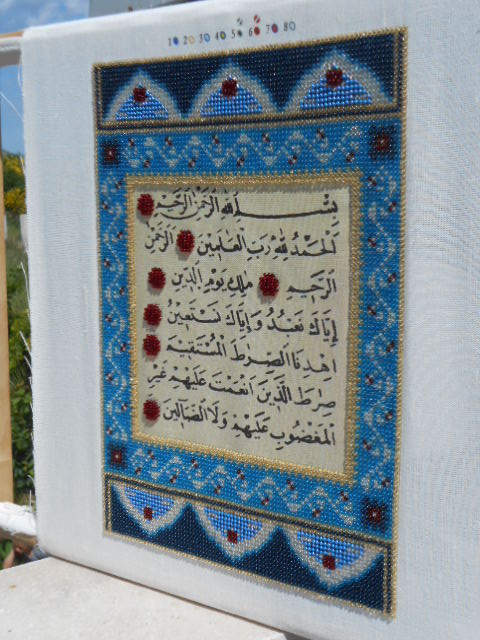 1 2 3 4 5 6 7 8
بِسْمِ اللهِ الرَّحْمٰنِ الرَّحِيْمِ
اَلْحَمْدُ لِلّٰهِ رَبِّ الْعَالَمِيْنَ الرَّحْمٰنِ
الرَّحِيْمِ مٰلِكِ يَوْمِ الدِّيْنِ
اِيَّاكَ نَعْبُدُ وَاِيَّاكَ نَسْتَعِيْنُ
اِهْدِنَا الصِّرَاطَ الْمُسْتَقِيْمَ
صِرَاطَ الَّذِيْنَ اَنْعَمْتَ عَلَيْهِمْ غَيْرِ
الْمَغْضُوْبِ عَلَيْهِمْ وَلَا الضَّالِّيْنَ